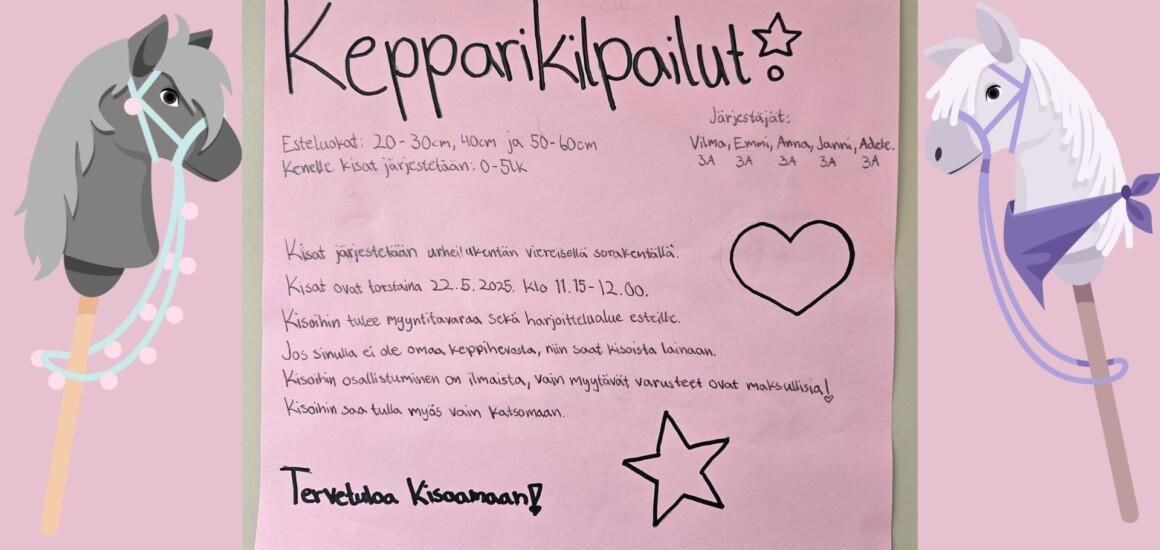 Kepparikilpailut!
Järjestäjät:
Esteluokat: 20-30cm, 40cm ja 50-60cm
Vilma, Emmi, Anna, Janni, Adele.
Kenelle kisat järjestetään: 0-5lk
3A 3A 3A 3A 3A
Kisat järjestetään urheilukentän viereisellä sorakentällä.
Kisat ovat torstaina 22.5.2025. klo 11.15-12.00.
Kisoihin tulee myyntitavaraa sekä harjoittelualue esteille.
Jos sinulla ei ole omaa keppihevosta, niin saat kisoista lainaan.
Kisoihin osallistuminen on ilmaista, vain myytävät varusteet ovat maksullisia!
Kisoihin saa tulla myös vain katsomaan.
Tervetuloa Kisaamaan!